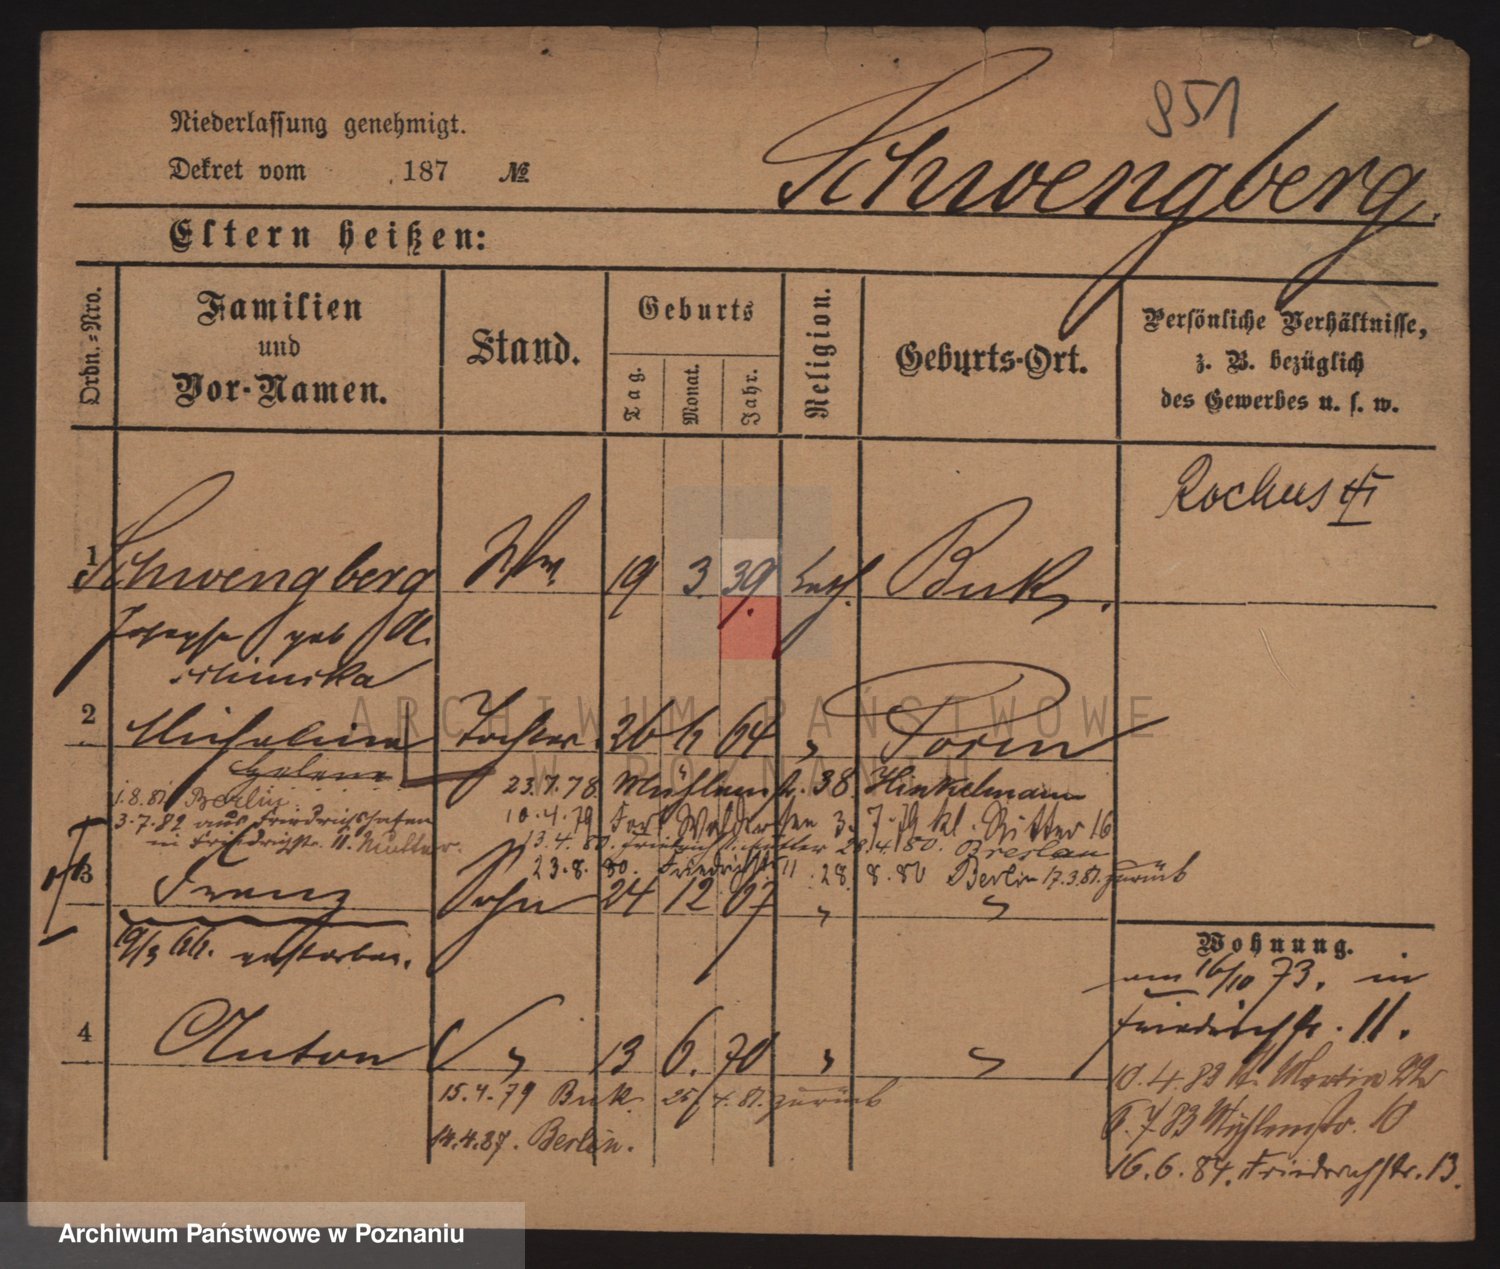 951
Niederlassung genehmigt.
Dekret vom 187 №
Schwengberg.
Eltern heißen:
Ordn.=Nro.
Familien
und
Vor-Namen.
Stand.
Geburts
Tag.
Monat.
Jahr.
Religion.
Geburts-Ort.
Persönliche Verhältnisse,
z. B. bezüglich
des Gewerbes u. s. w.
Rochus
1 Schwengberg Ww. 19 3. 39. kath. Buk.
Josepha geb
2 Tochter 26 64 " Posen
Helene
23.7.78. Mühlenstr. 38. Hinkelmann
1.8.81. Berlin.
10.4.79 Fort Waldersee 3.7.79 kl. Ritter 16
3.7.82 aus Friedrichshafen
in Friedrichstr. 11. Mutter.
13.4.80. 28.4.80. Breslau
23.8.80. Friedrichstr. 11 28.8.80 Berlin 17.3.81. zurück
3 Franz Sohn 24 12 67 " "
19/3 gestorben.
4 Anton " 13 6. 70 " "
15.4.79 Buk. 25/4.81. zurück
14.4.87. Berlin.
Wohnung.
am 16/10 73. in
Friedrichstr. 11.
10.4.82 St. Martin
6.7.83 Mühlenstr. 10
16.6.84. Friedrichstr. 13.
ARCHIWUM PAŃSTWOWE
W POZNANIU
Archiwum Państwowe w Poznaniu